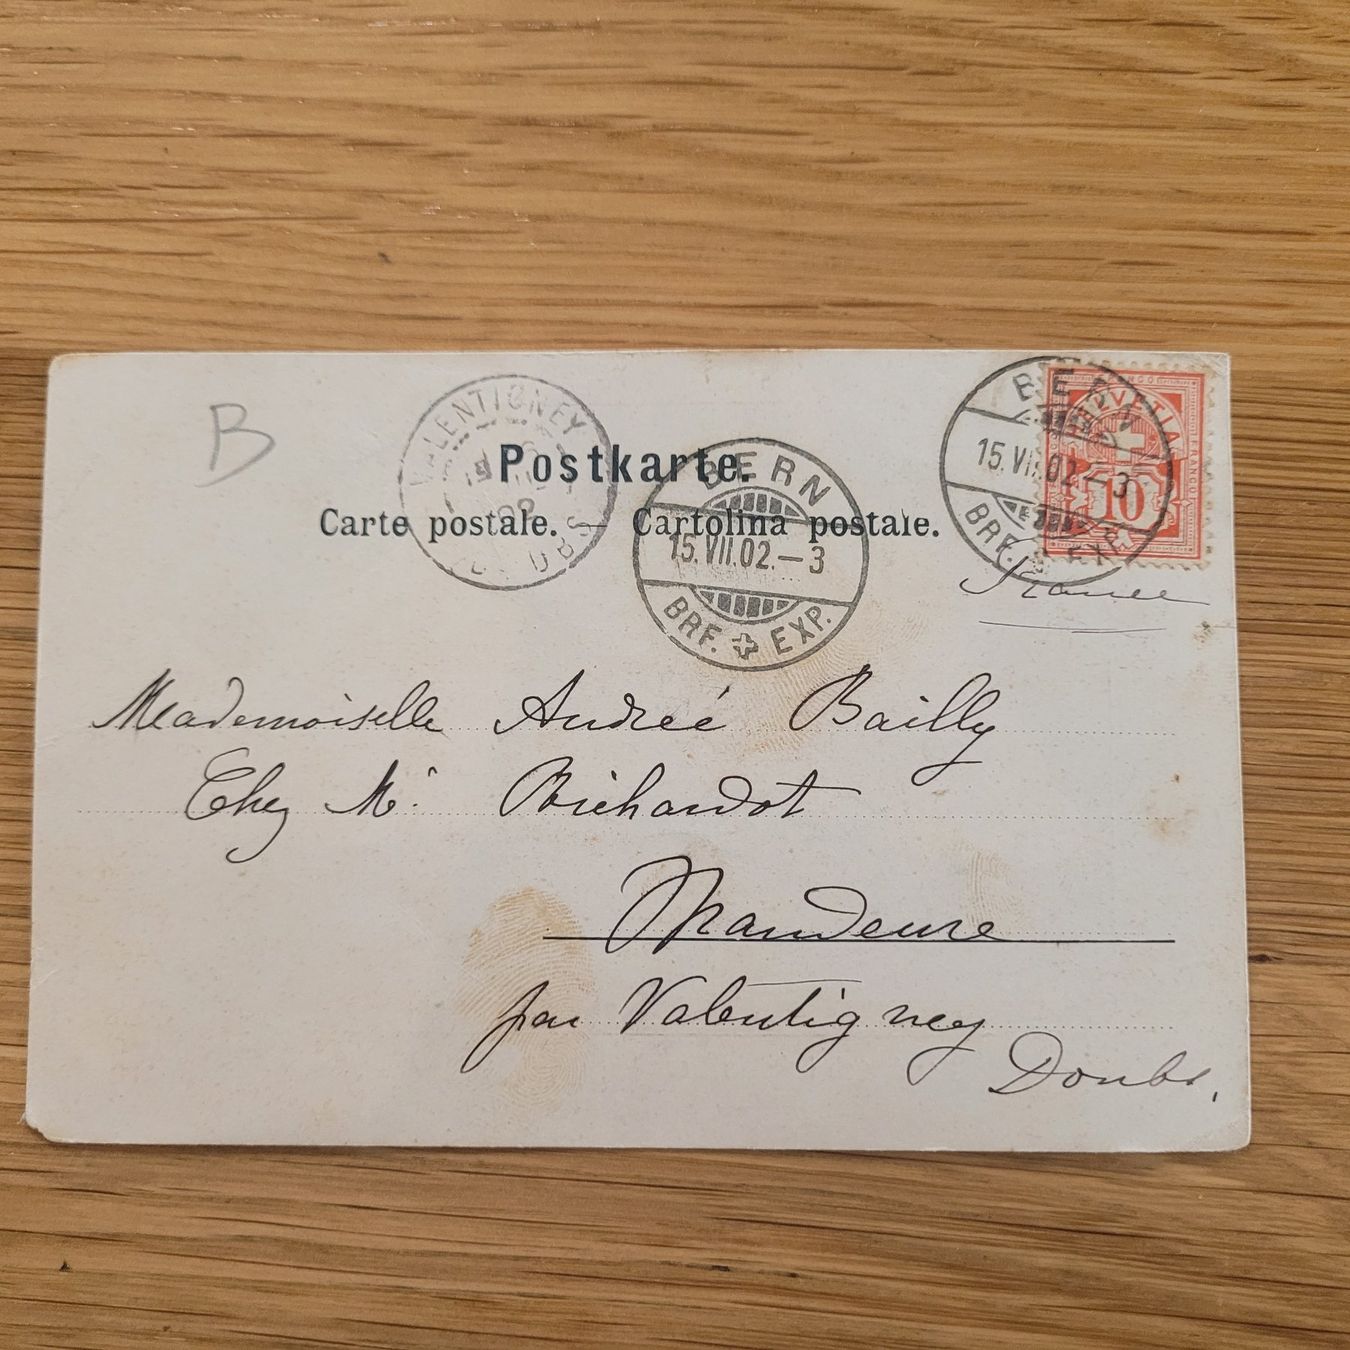 B
VALENTIGNEY
DOUBS
Postkarte.
Carte postale. — Cartolina postale.
BERN
15.VII.02.—3
BRF. EXP.
BERN
15.VII.02.—3
BRF. EXP.
FRANCO
HELVETIA
10
France
Mademoiselle Andreé Bailly
Chez Mr Richardot
Mandeure
par Valentigney
Doubs.